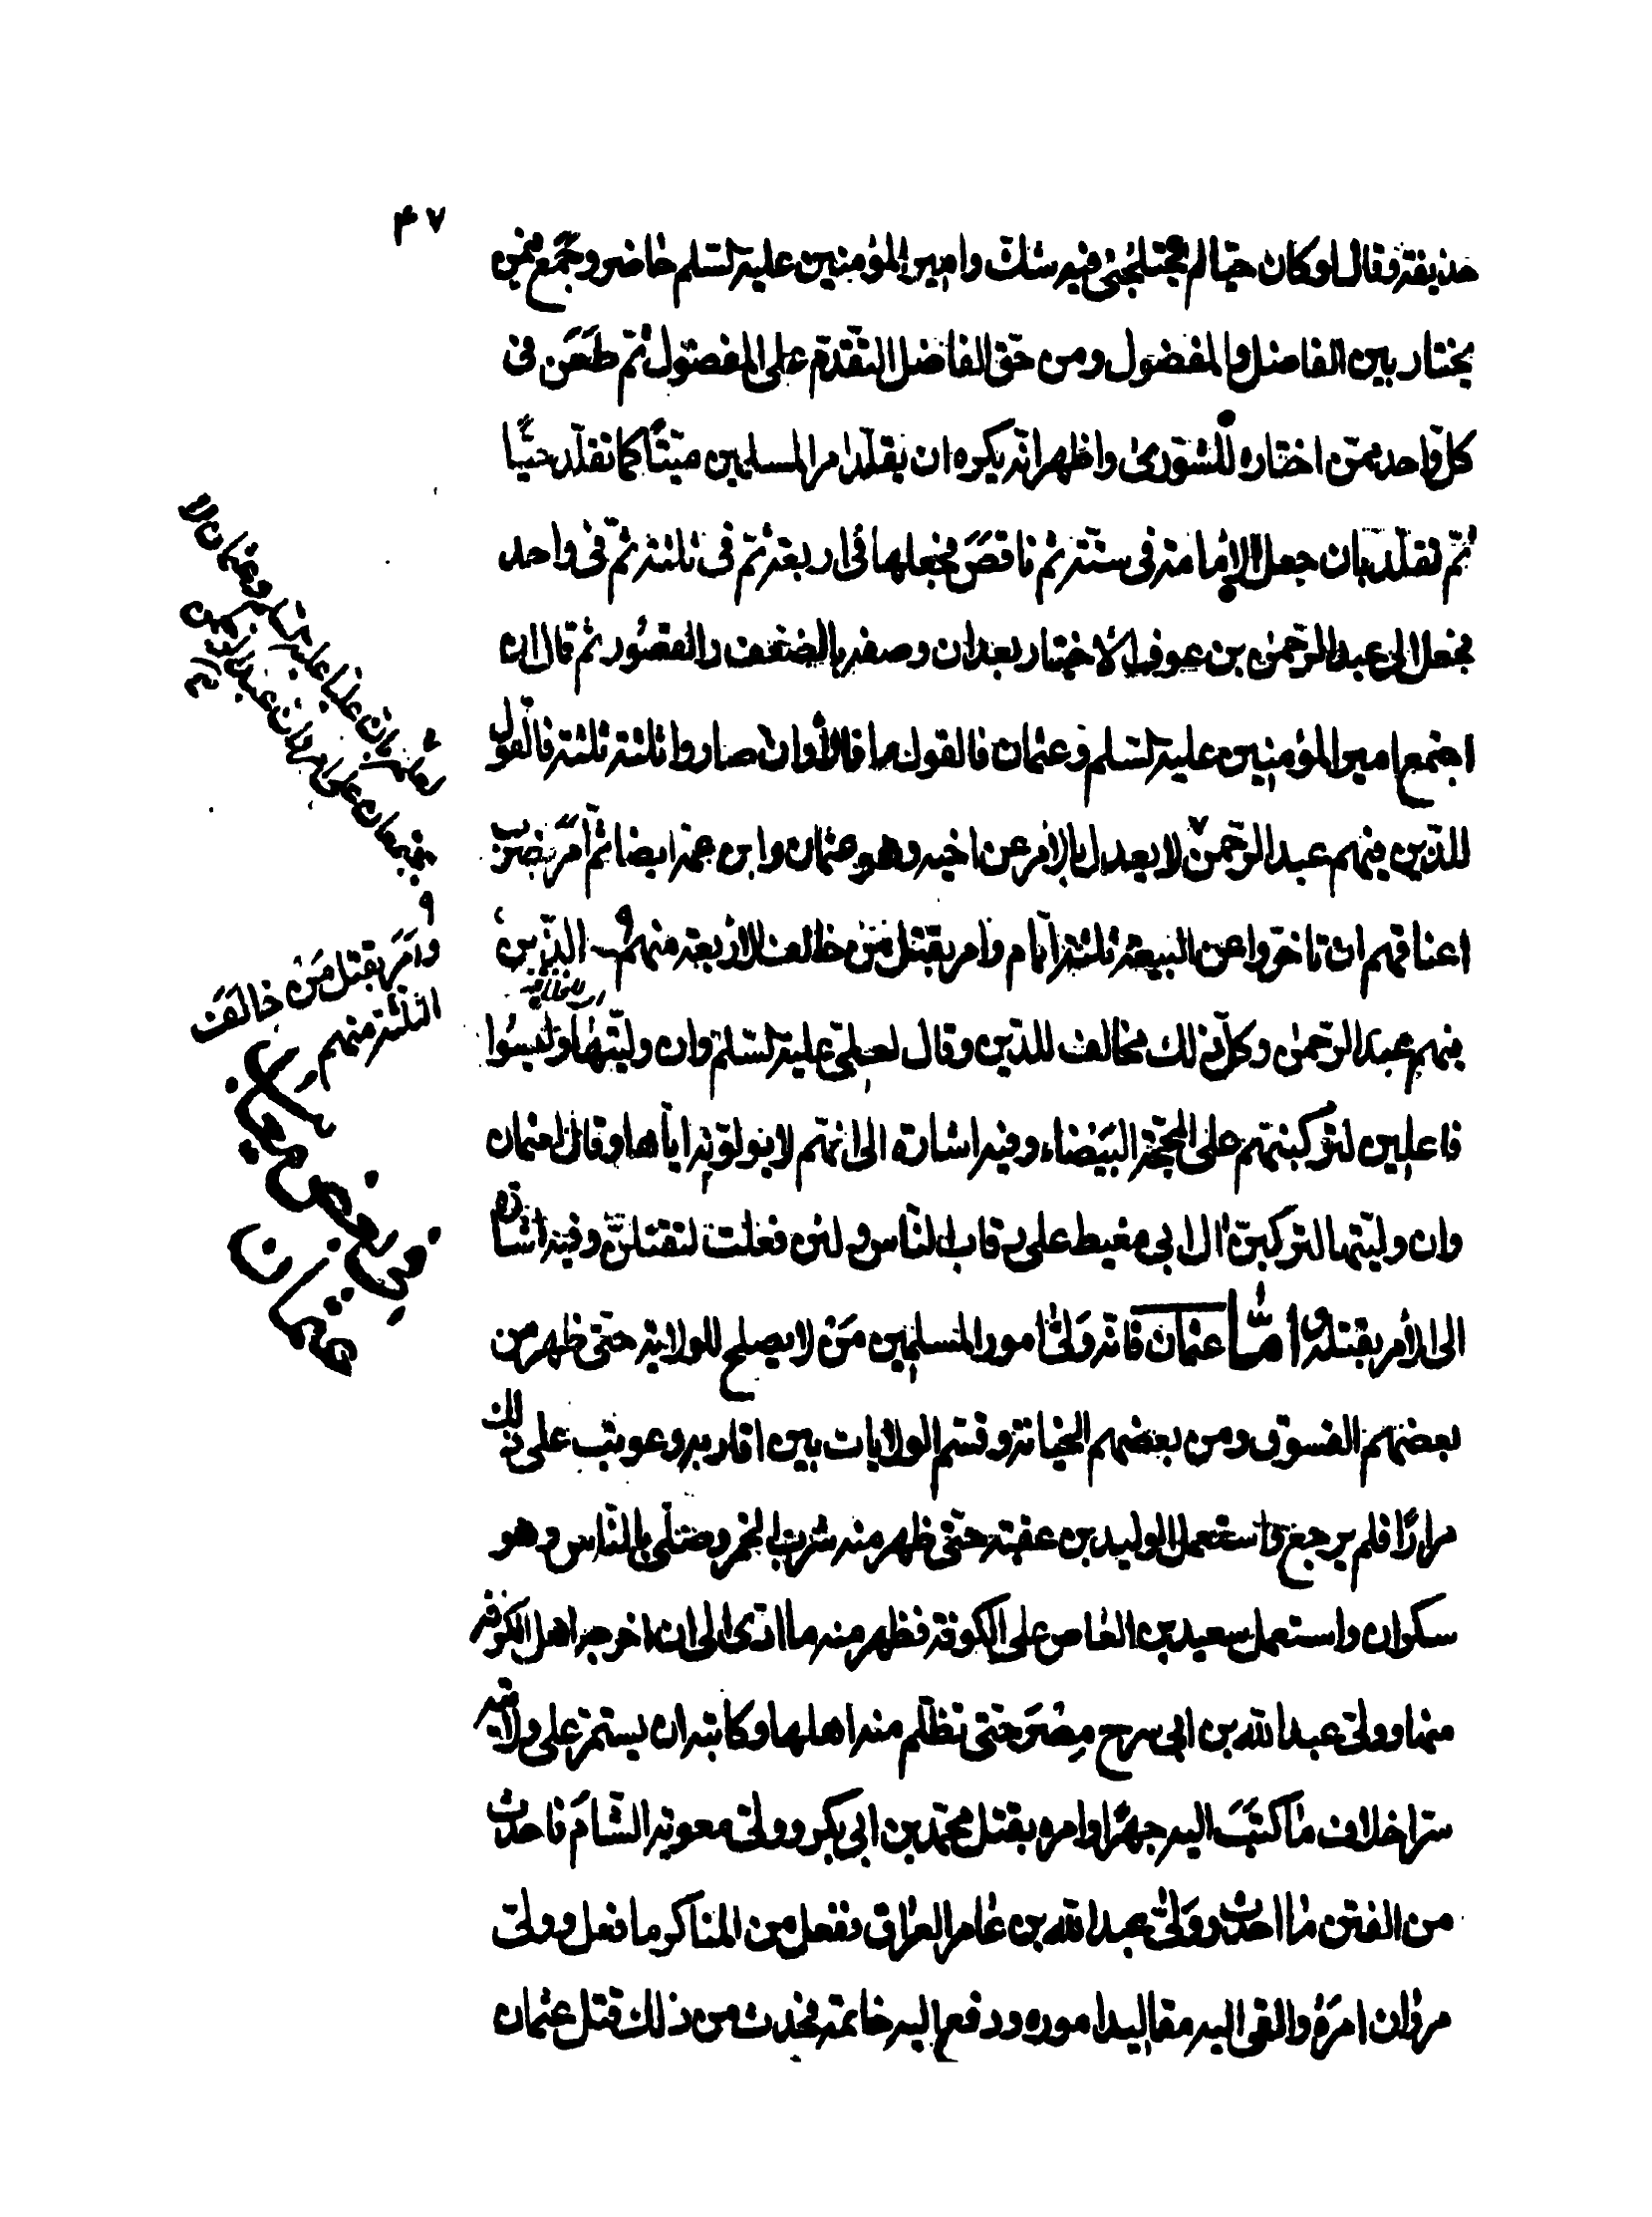 ٤٧
حذيفة وقال لو كان حيّا لم يختلجنى فيه شك وامير المؤمنين عليه السّلم حاضر وجَمَع فيمن
يختار بين الفاضل والمفضول ومن حق الفاضل التّقدّم على المفضول ثم طَعَن فى
كلّ واحد ممّن اختاره للشّورى واظهر انّه يكره ان يقلّد امر المسلمين ميّتًا كما تقلّده حيًّا
ثمّ تقلّد بان جعل الإمامة فى ستّة ثم ناقَضَ فجعلها فى اربعة ثمّ فى ثلثة ثمّ فى واحد
فجعل الى عبد الرّحمن بن عوف الاختيار بعد ان وصفه بالضّعف والقصُور ثم قال ان
اجتمع امير المؤمنين عليه السّلم وعثمان فالقول ما قالا وان صاروا ثلثة ثلثة فالقول
للذين فيهم عبد الرّحمن لا يعدل بالامر عن اخيه وهو عثمان وابن عمه ايضا ثمّ امَرَ بضرب
اعناقهم ان تاخّروا عن البيعة ثلثة ايّام وامر بقتل من خالف الاربعة منهم الذين
فيهم عبد الرّحمن وكلّ ذلك مخالف للدّين وقال لعلىّ عليه السّلم وان وليّتها وليسُوا
فاعلين لتركبنّهم على المحجّة البيضاء وفيه اشارة الى انّهم لا يولّونه ايّاها وقال لعثمان
وان وليّتها لتركبنّ ال ابى معيط على رقاب النّاس ولئن فعلت لتقتلنّ وفيه اشارة
الى الامر بقتله وامّا عثمان فانّه ولّى امور المسلمين مَنْ لا يصلح للولاية حتّى ظهر من
بعضهم الفسوق ومن بعضهم الخيانة وقسّم الولايات بين اقاربه وعوتب على ذلك
مرارًا فلم يرجع واستعمل الوليد بن عقبة حتّى ظهر منه شرب الخمر وصلّى بالنّاس وهو
سكران واستعمل سعيد بن العاص على الكوفة فظهر منه ما ادّى الى ان اخرجه اهل الكوفة
منها وولّى عبد الله بن ابى سرح مِصْرَ حتّى تظلّم منه اهلها وكاتبه ان يستمرّ على ولايته
سرّا خلاف ما كتَبَ اليه جهرًا وامره بقتل محمّد بن ابى بكر وولّى معوية الشّام فاحدث
من الفتن ما احدث وولّى عبد الله بن عامر العراق ففعل من المناكر ما فعل وولّى
مروان امرَهُ والقى اليه مقاليد اموره ودفع اليه خاتمه فحدث من ذلك قتل عثمان
لعلمه بان عليّا عليه السّلم وعثمان لا
يجتمعان على امر وان عبد الرحمن
وامَرَ بقتل مَنْ خالَفَ
الثلثة منهم
فى بعض معايب
عثمان